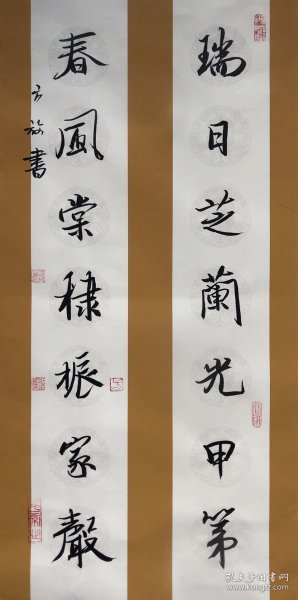 瑞日芝蘭光甲第
春風棠棣振家聲
方放書
孔夫子旧书网